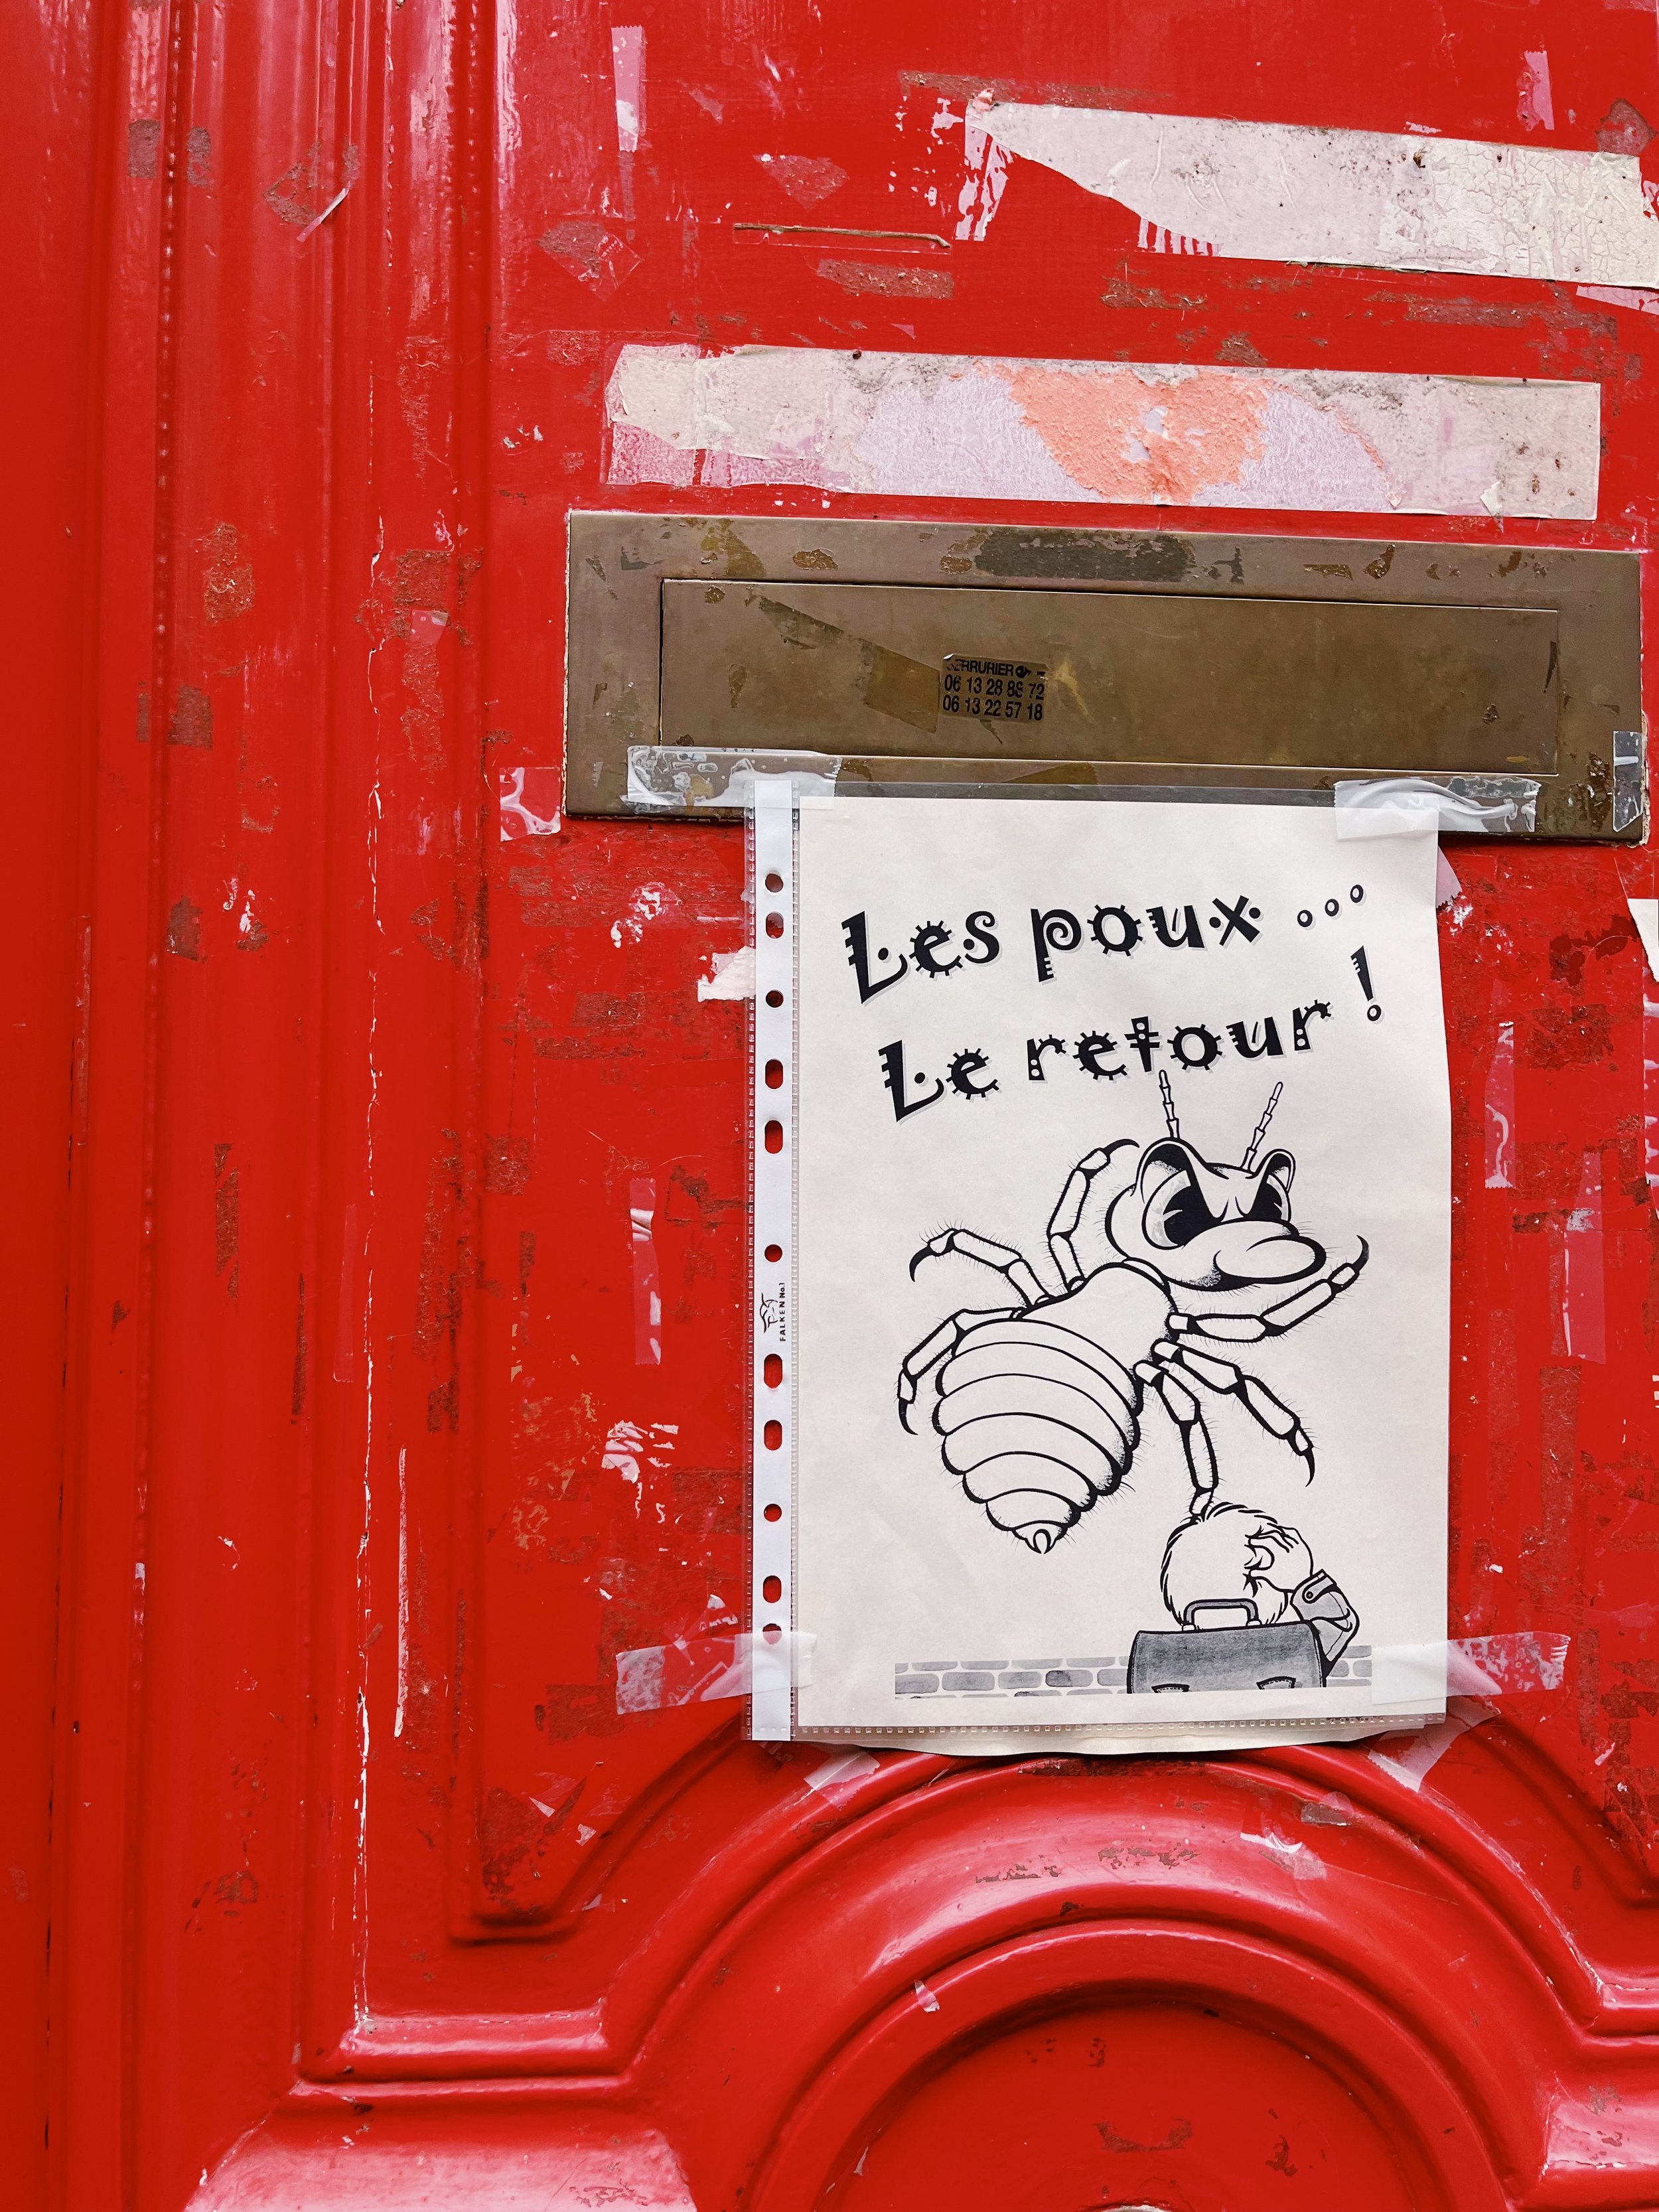 SERRURIER
06 13 28 88 72
06 13 22 57 18
Les poux ...
Le retour !
FALKEN No.1